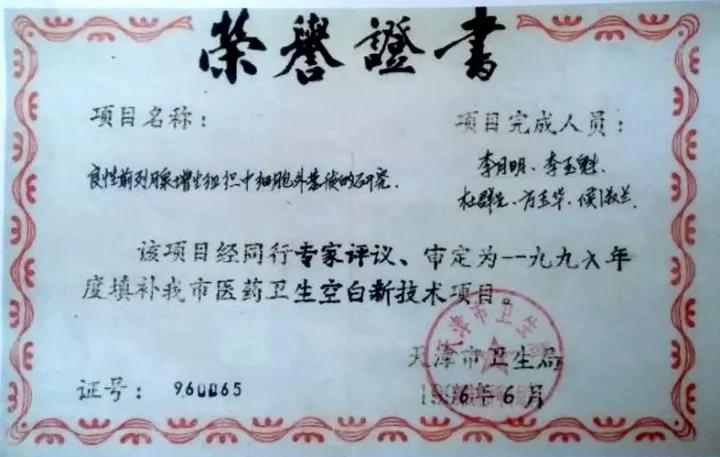 榮譽證書
项目名称：
项目完成人员：
良性前列腺增生组织中细胞外基质的研究.
李月明、李玉魁
杜群、方玉华、侯淑兰
该项目经同行专家评议、审定为一九九六年
度填补我市医药卫生空白新技术项目。
天津市卫生局
证号：960065
1996年6月